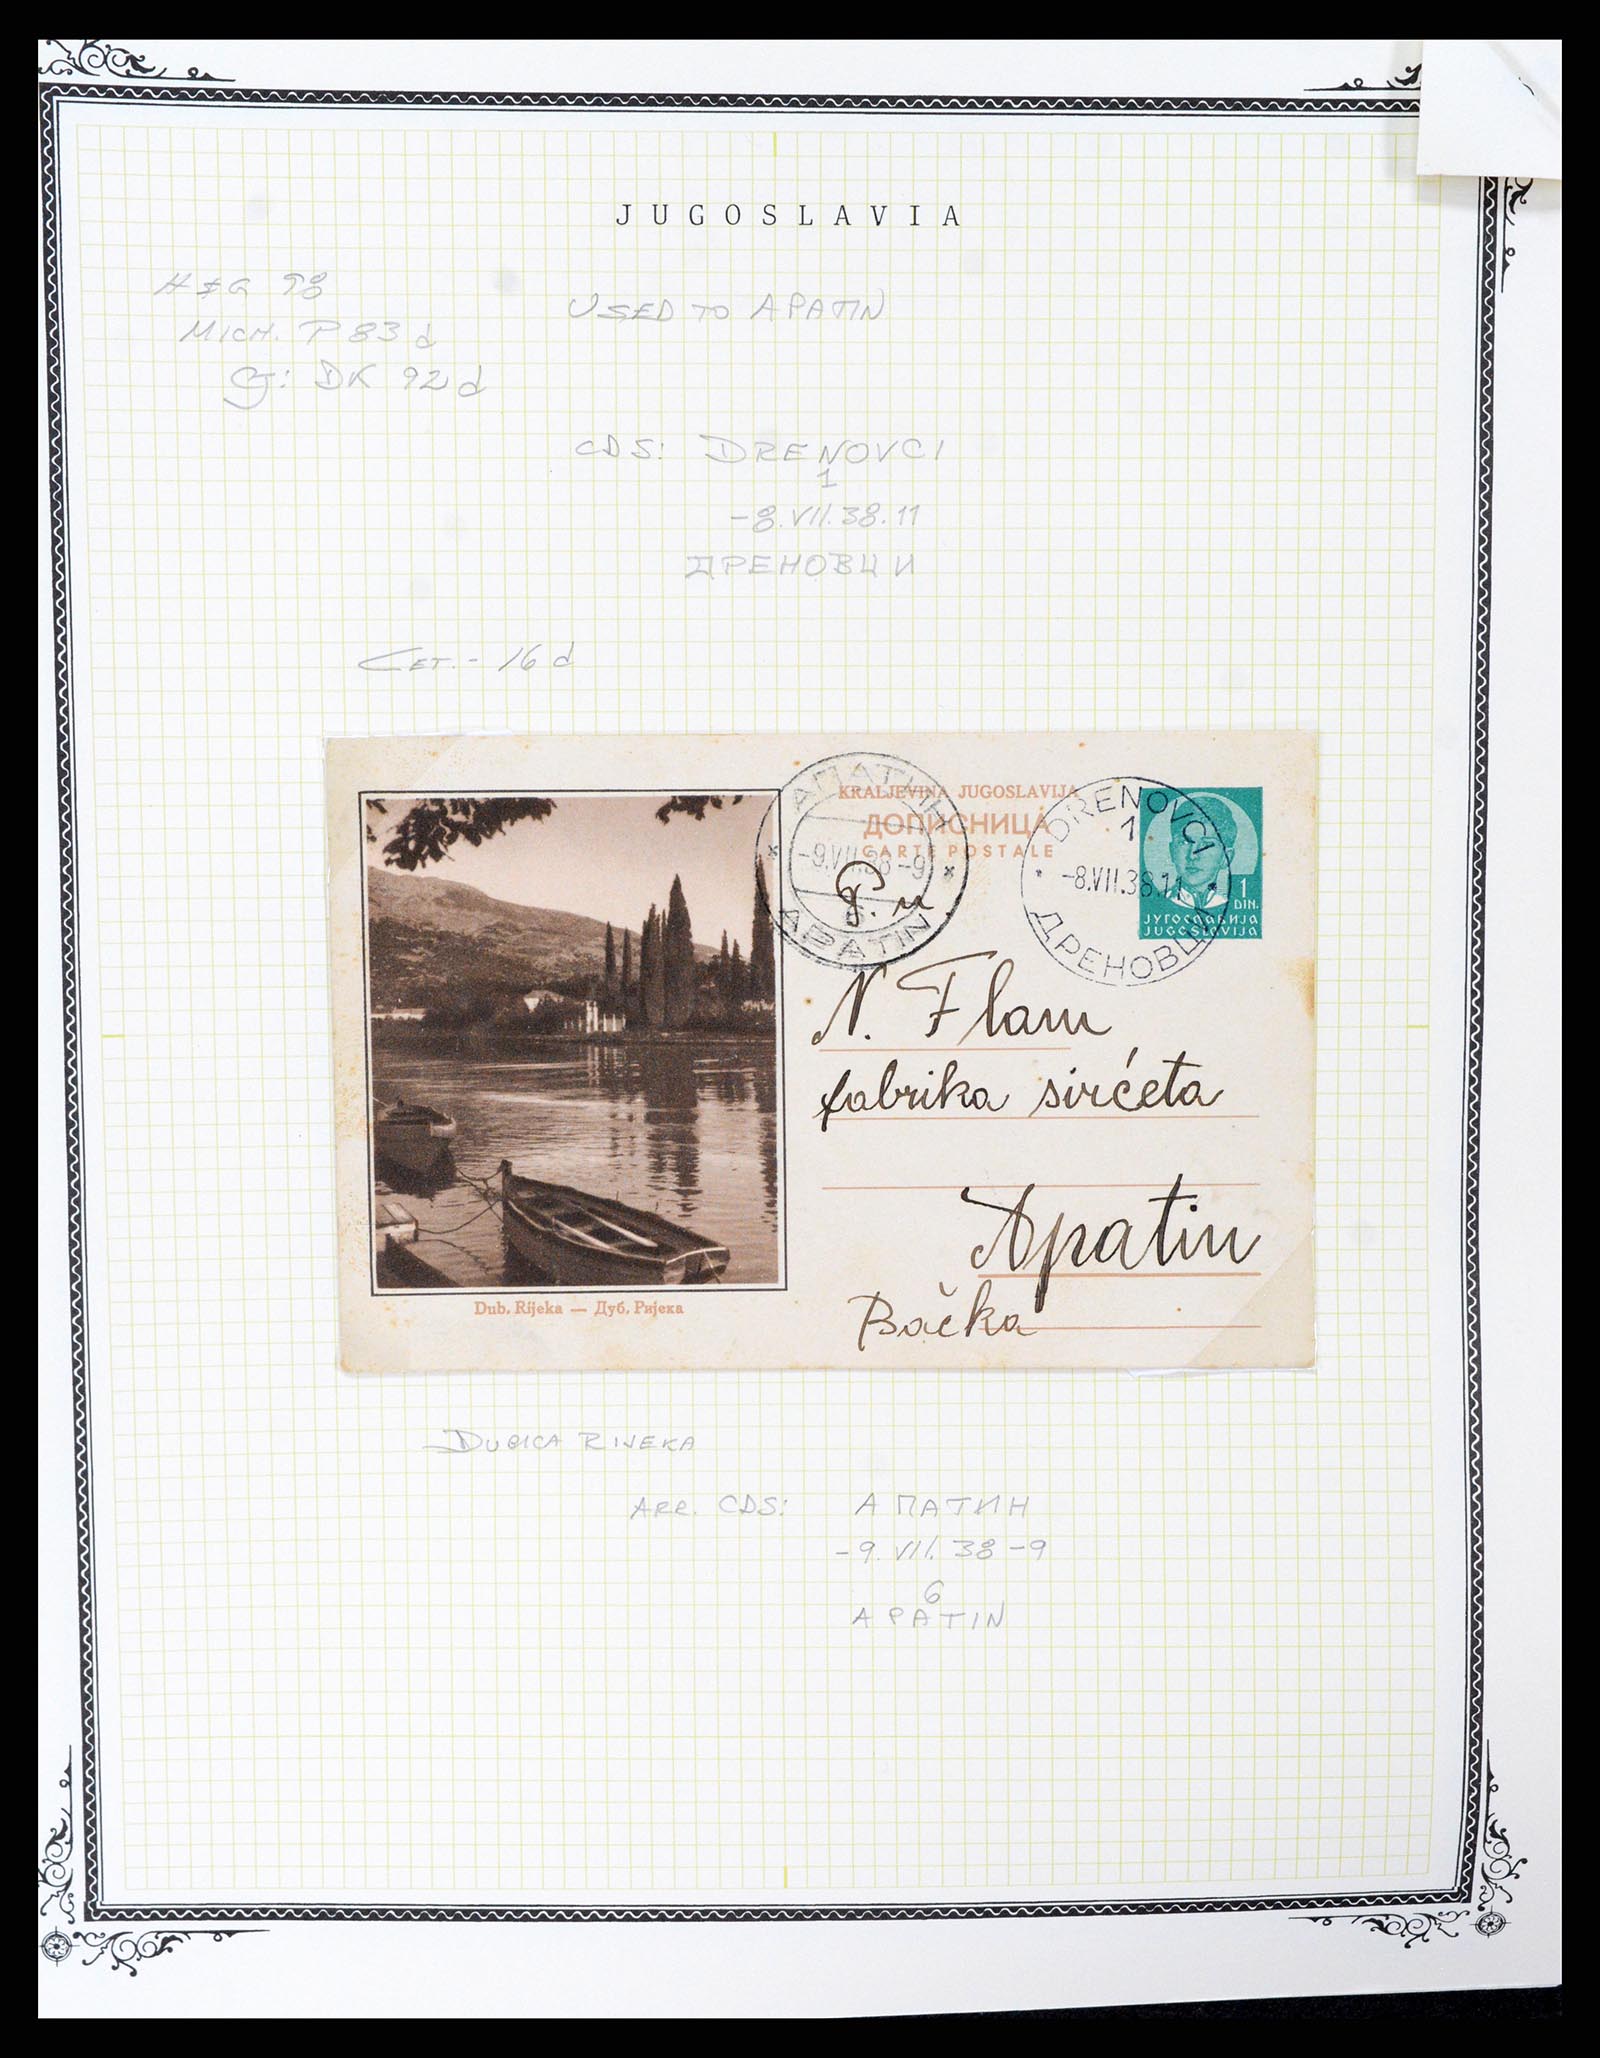 JUGOSLAVIA
H & G 98
MICH. P 83 d
CJ: DK 92 d
USED TO APATIN
CDS: DRENOVCI
1
-8.VII.38.11
ДРЕНОВЦИ
CET. - 16 d
KRALJEVINA JUGOSLAVIJA
ДОПИСНИЦА
CARTE POSTALE
АПАТИН
-9.VII.38-9
APATIN
DRENOVCI
1
-8.VII.38.11
ДРЕНОВЦИ
1
DIN.
ЈУГОСЛАВИЈА
JUGOSLAVIJA
N. Flam
fabrika sirćeta
Apatin
Bačka
Dub. Rijeka — Дуб. Ријека
DUBICA RIJEKA
ARR. CDS: АПАТИН
-9.VII.38-9
6
APATIN